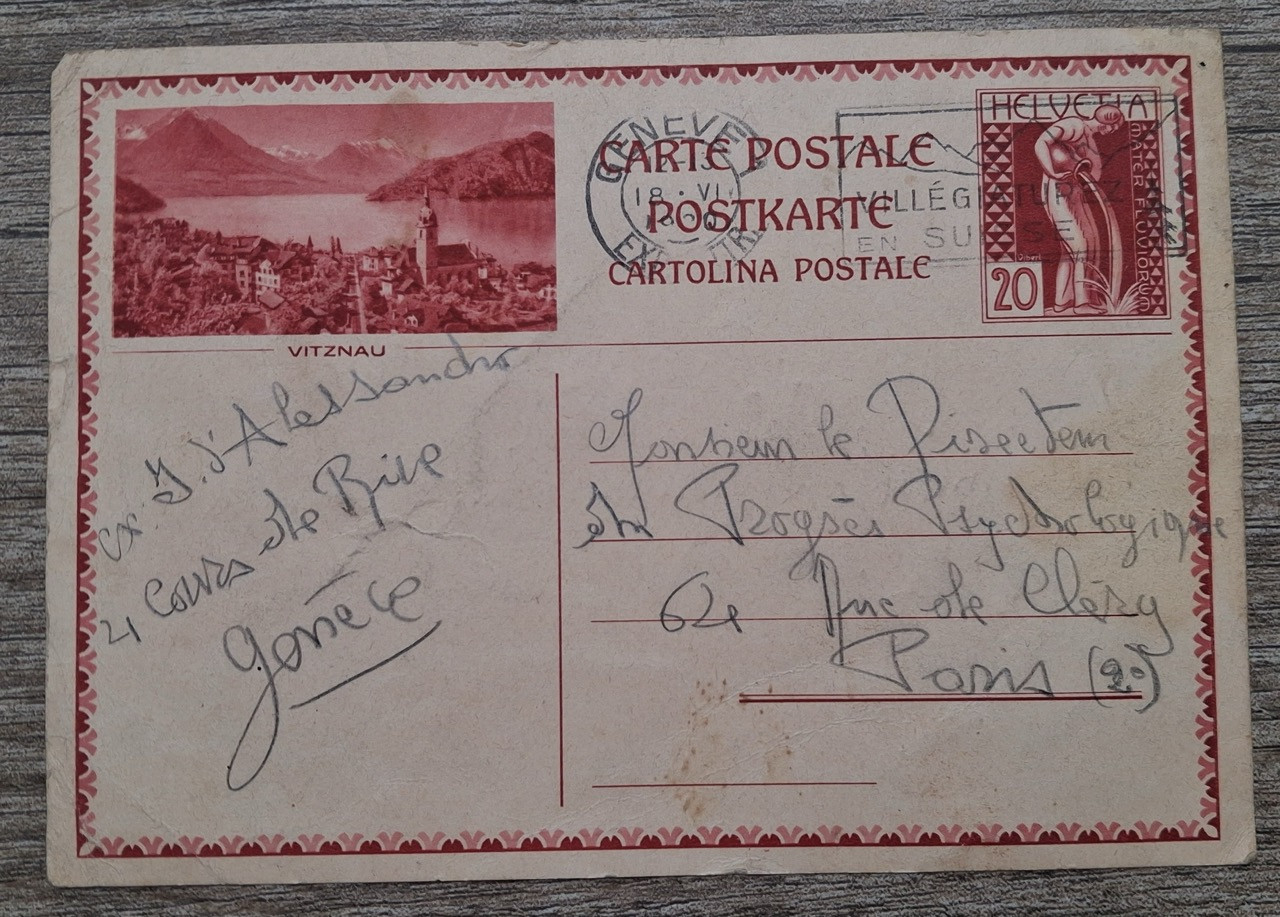 GENEVE 1
18. VI
CARTE POSTALE
POSTKARTE
CARTOLINA POSTALE
VILLÉGIATUREZ
EN SUISSE
HELVETIA
MATER FLUVIORUM
20
VITZNAU
ex. J. d'Alessandro
21 Cours de Rive
Genève
Monsieur le Directeur
du Progrès Psychologique
62 Rue de Cléry
Paris (2e)